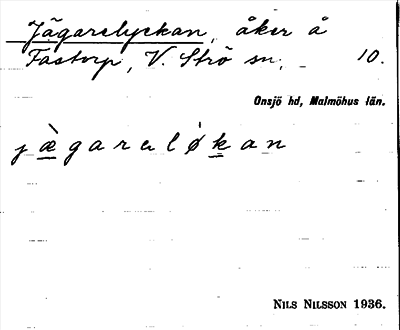 Jägarelyckan, åker å
Fastorp, V. Strö sn. 10.
Onsjö hd, Malmöhus län.
jæ̀garelǿkan
NILS NILSSON 1936.